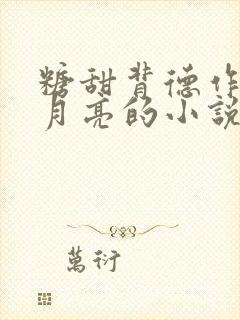 糖甜背德作
月亮的小說
萬衍